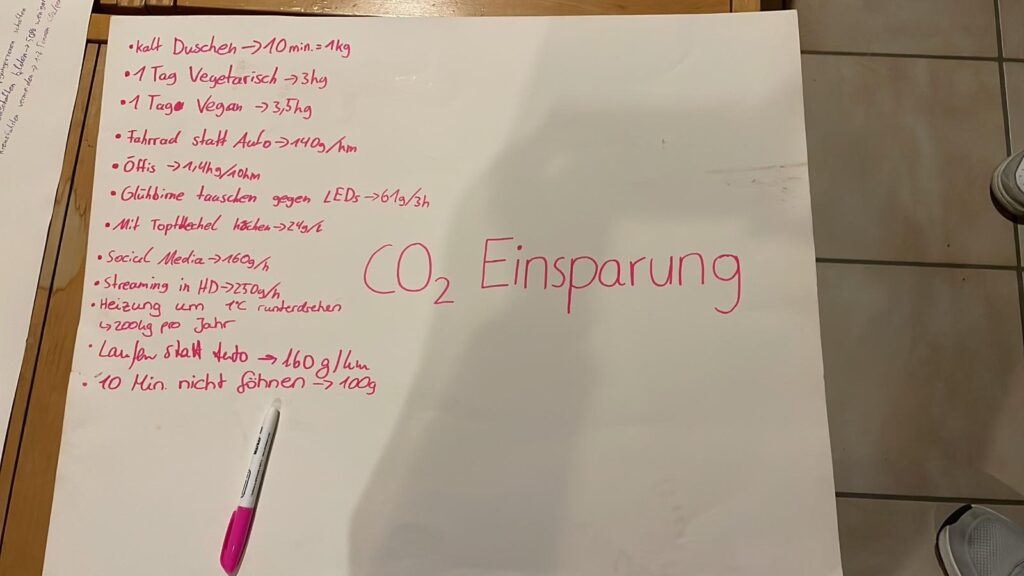 • kalt Duschen → 10 min. = 1kg
• 1 Tag Vegetarisch → 3kg
• 1 Tag Vegan → 3,5kg
• Fahrrad statt Auto → 140g/km
• Öffis → 1,4kg/10km
• Glühbirne tauschen gegen LEDs → 61g/3h
• Mit Topfdeckel kochen → 24g/
• Social Media → 160g/h
• Streaming in HD → 250g/h
• Heizung um 1°C runterdrehen
↳ 200kg pro Jahr
• Laufen statt Auto → 160g/km
• 10 Min. nicht föhnen → 100g
CO₂ Einsparung